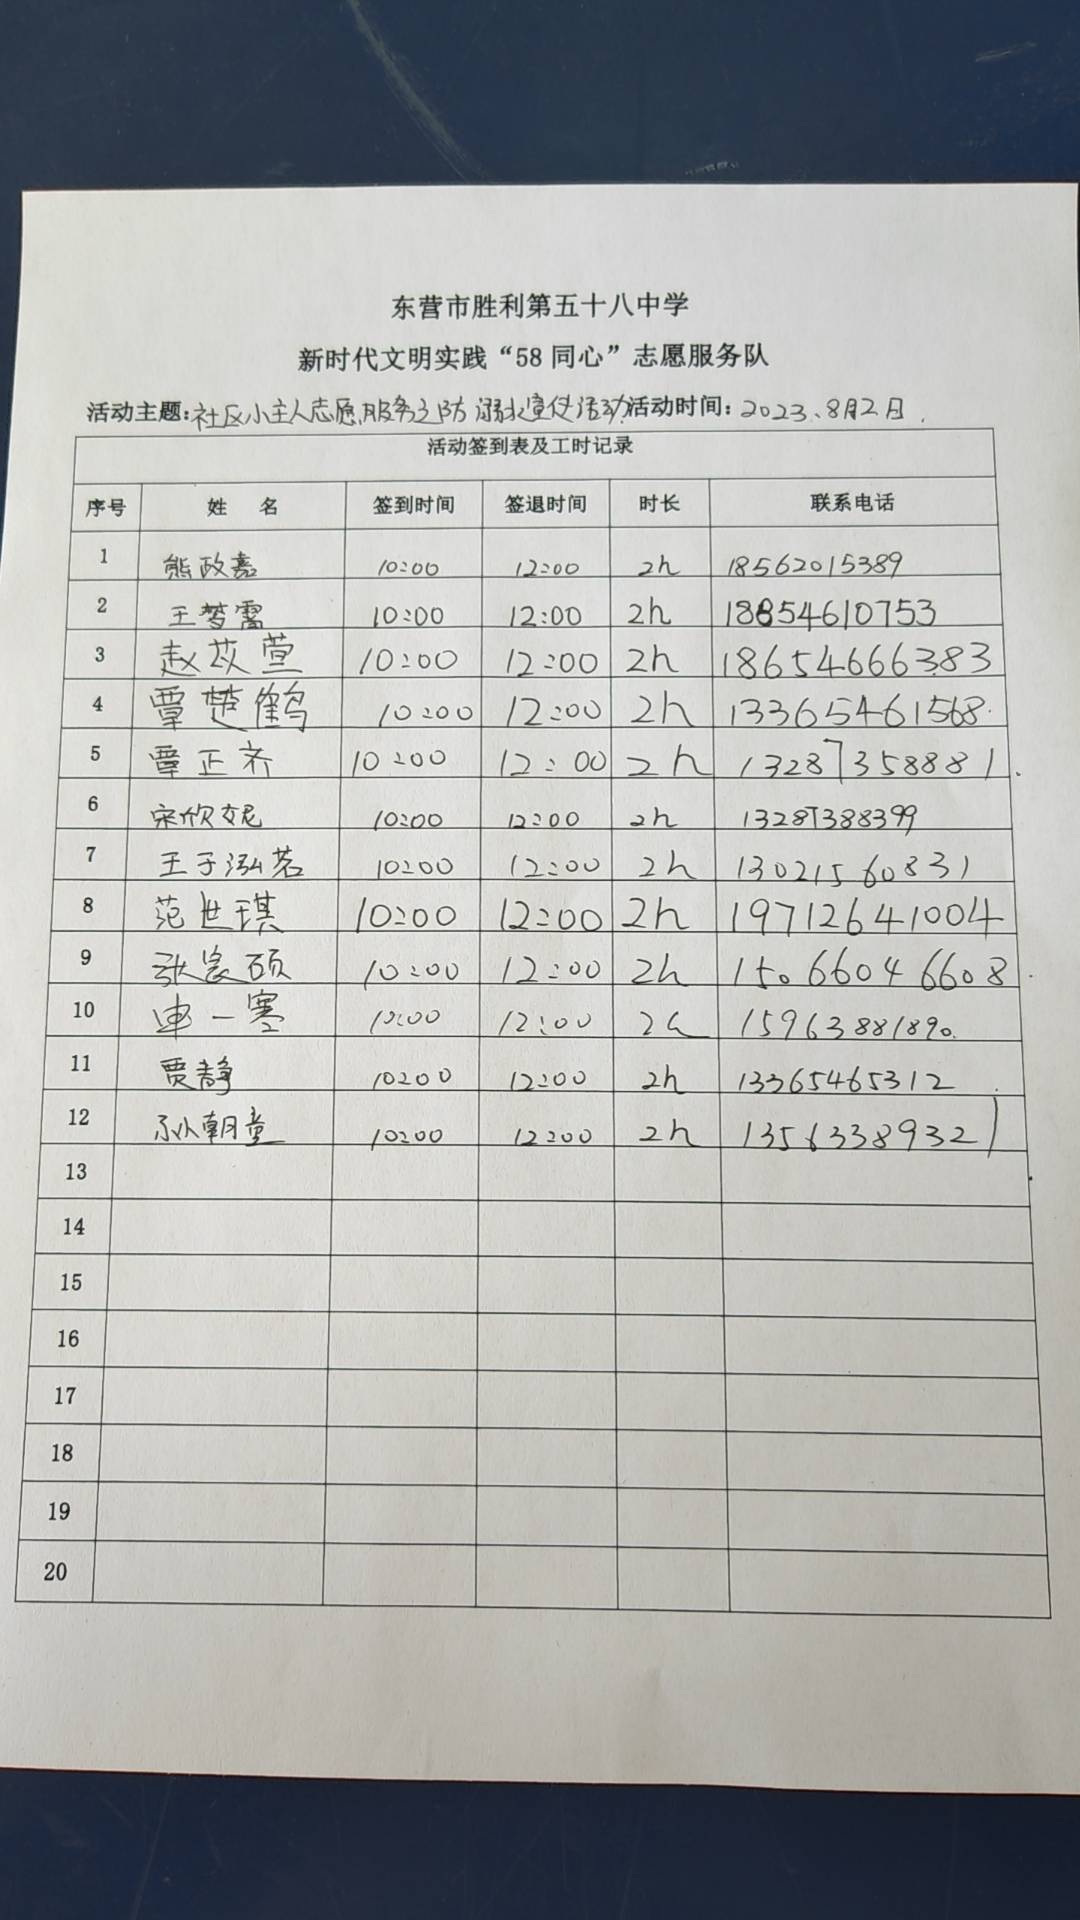 东营市胜利第五十八中学
新时代文明实践“58同心”志愿服务队
活动主题:社区小主人志愿服务之防溺水宣传活动 活动时间:2023.8月2日.
活动签到表及工时记录
序号 姓 名 签到时间 签退时间 时长 联系电话
1 熊政嘉 10:00 12:00 2h 18562015389
2 王梦霭 10:00 12:00 2h 18854610753
3 赵苡萱 10:00 12:00 2h 18654666383
4 覃楚鹤 10:00 12:00 2h 13365461568
5 覃正齐 10:00 12:00 2h 13287358881
6 宋欣妮 10:00 12:00 2h 13287388399
7 王于泓茗 10:00 12:00 2h 13021560831
8 范世琪 10:00 12:00 2h 19712641004
9 张宸硕 10:00 12:00 2h 15066046608
10 一 10:00 12:00 2h 15963881890.
11 贾静 10:00 12:00 2h 13365465312
12 孙朝童 10:00 12:00 2h 13563389321
13
14
15
16
17
18
19
20